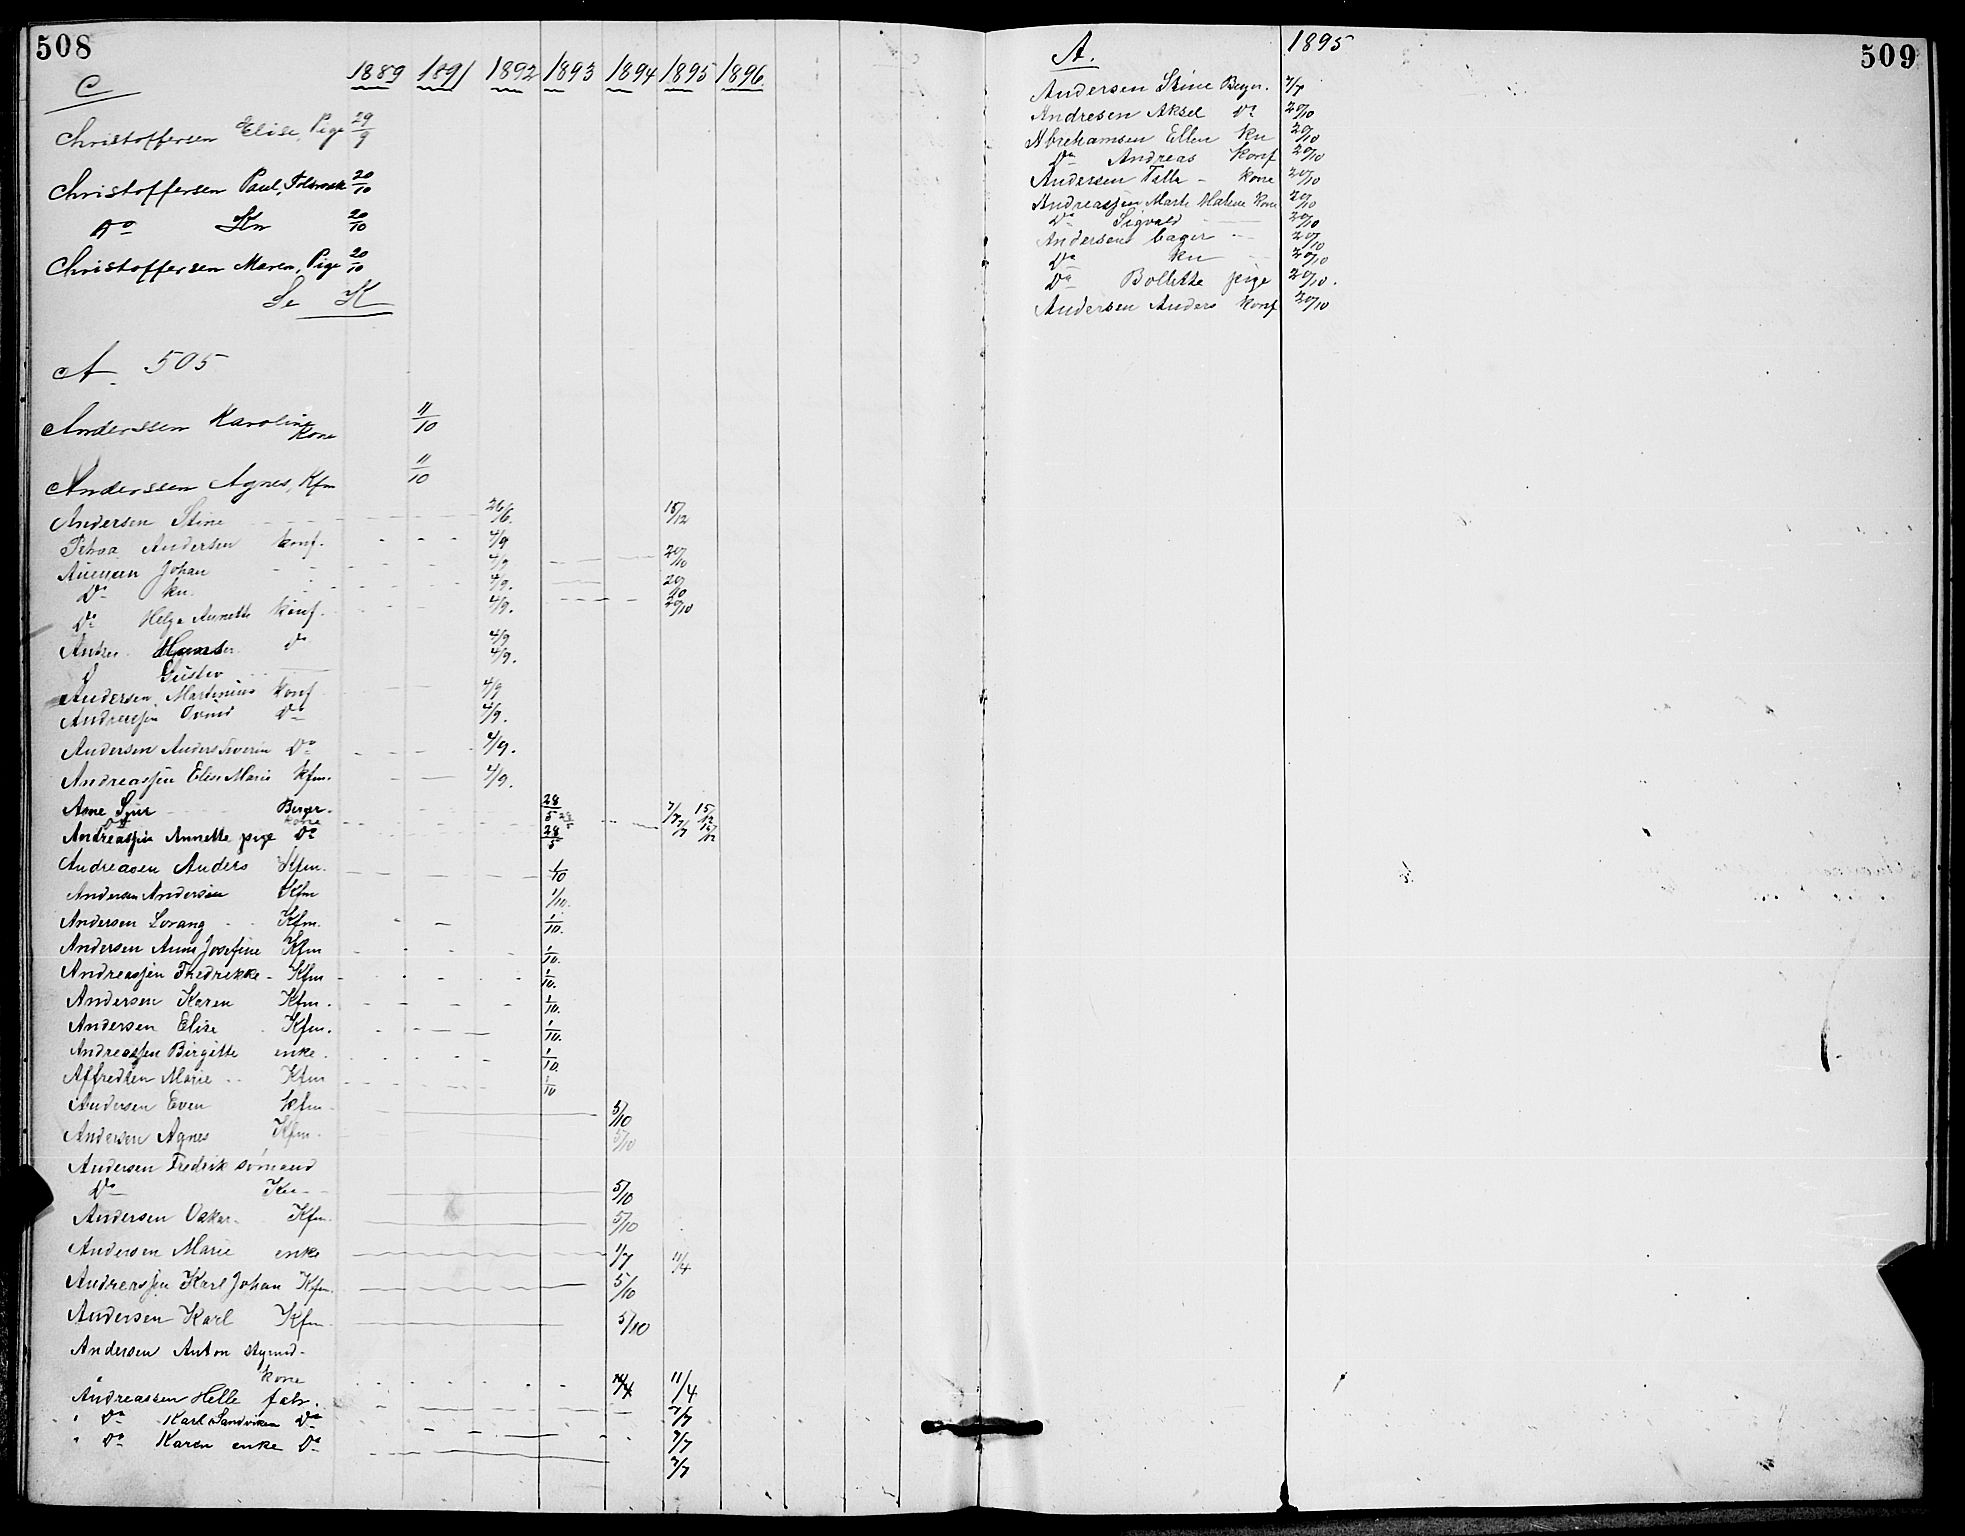 508
C 1889 1891 1892 1893 1894 1895 1896
Christoffersen Elise, Pige 29/9
Christoffersen Paul, 20/10
Do Kn 20/10
Christoffersen Maren, Pige 20/10
Se K
A. 505
Anderssen Karoline Kone 11/10
Anderssen Agnes, Kfm 11/10
Andersen Stine 26/6. 15/12
Petra Andersen konf. 4/9
Johan 4/9 20/10
Do kn. 4/9. 20/10
Do Helga Annette konf. 4/9. 20/10
Hans Do 4/9
D Gustav 4/9.
Andersen Martinius konf 4/9
Andreassen Do 4/9.
Andersen Anders Severin Do 4/9.
Andreassen Elise Marie kfm. 4/9.
Arne Sjur Berger. 28/5 7/7 15/12
Do kone 28/5 7/7 15/12
Andreassen Annette pige Do 28/5
Andreasen Anders Kfm. 1/10
Andersen Andersine Kfm 1/10.
Andersen Lorang Kfm. 1/10.
Andersen Anna Josefine Kfm 1/10.
Andreassen Fredrikke - Kfm 1/10.
Andersen Karen Kfm. 1/10.
Andersen Elise Kfm. 1/10.
Andreassen Birgitte enke. 1/10.
Alfredsen Marie Kfm 1/10
Andersen Even kfm 5/10
Andersen Agnes Kfm. 5/10
Andersen Fredrik sømand
Do Kn 5/10
Andersen Oskar Kfm. 5/10
Andersen Marie enke 1/7 11/4
Andreassen Karl Johan Kfm. 5/10
Andersen Karl Kfm 5/10
Andersen Anton styrmd.
" kone 11/4 11/4
Andreassen Helle fabr. 7/7
" Do Karl Sandviken Do 7/7
" Do Karen enke Do 7/7
509
A. 1895
Andersen Stine 7/7
Andresen Aksel Do 20/10
Abrehamsen Ellen kn 20/10
Do Andreas konf 20/10
Andersen Talla - kone 20/10
Andreassen Marte Malene kone 20/10
Do Sigvald 20/10
Andersen bager 20/10
Do kn 20/10
Do Bollette pige 20/10.
Andersen Anders konf 20/10